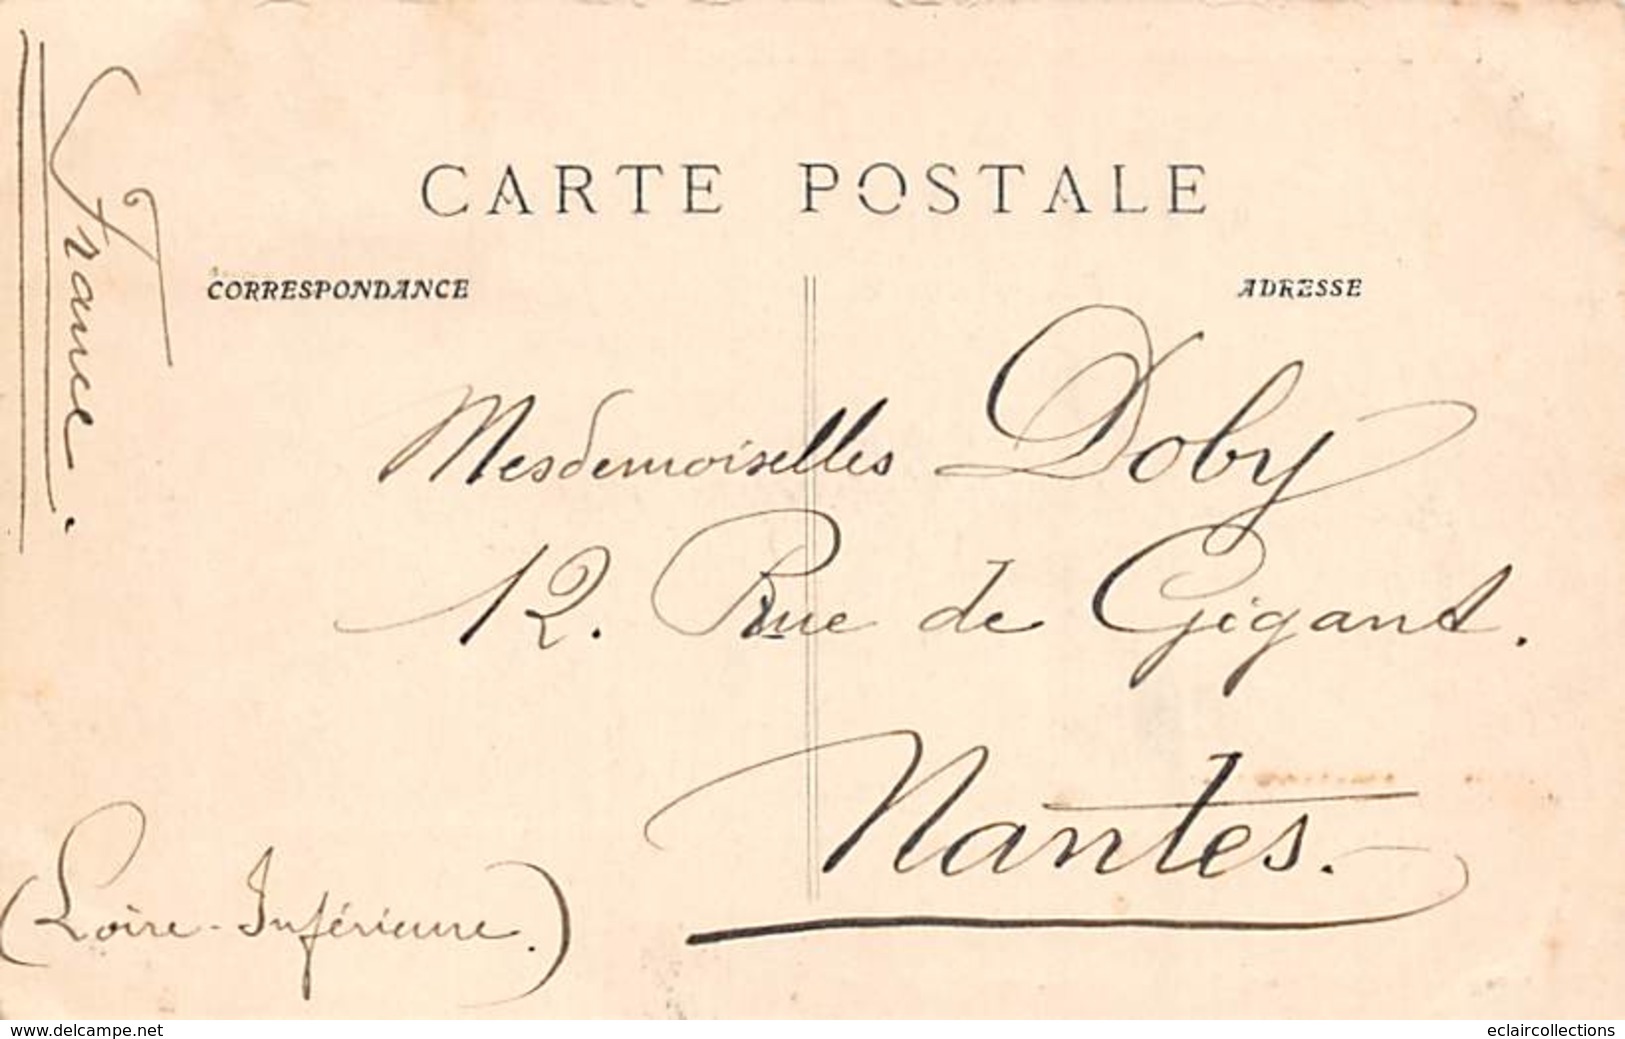 CARTE POSTALE
CORRESPONDANCE
ADRESSE
France.
Mesdemoiselles Doby
12. Rue de Gigant.
Nantes.
(Loire-Inférieure.)
www.delcampe.net
eclaircollections